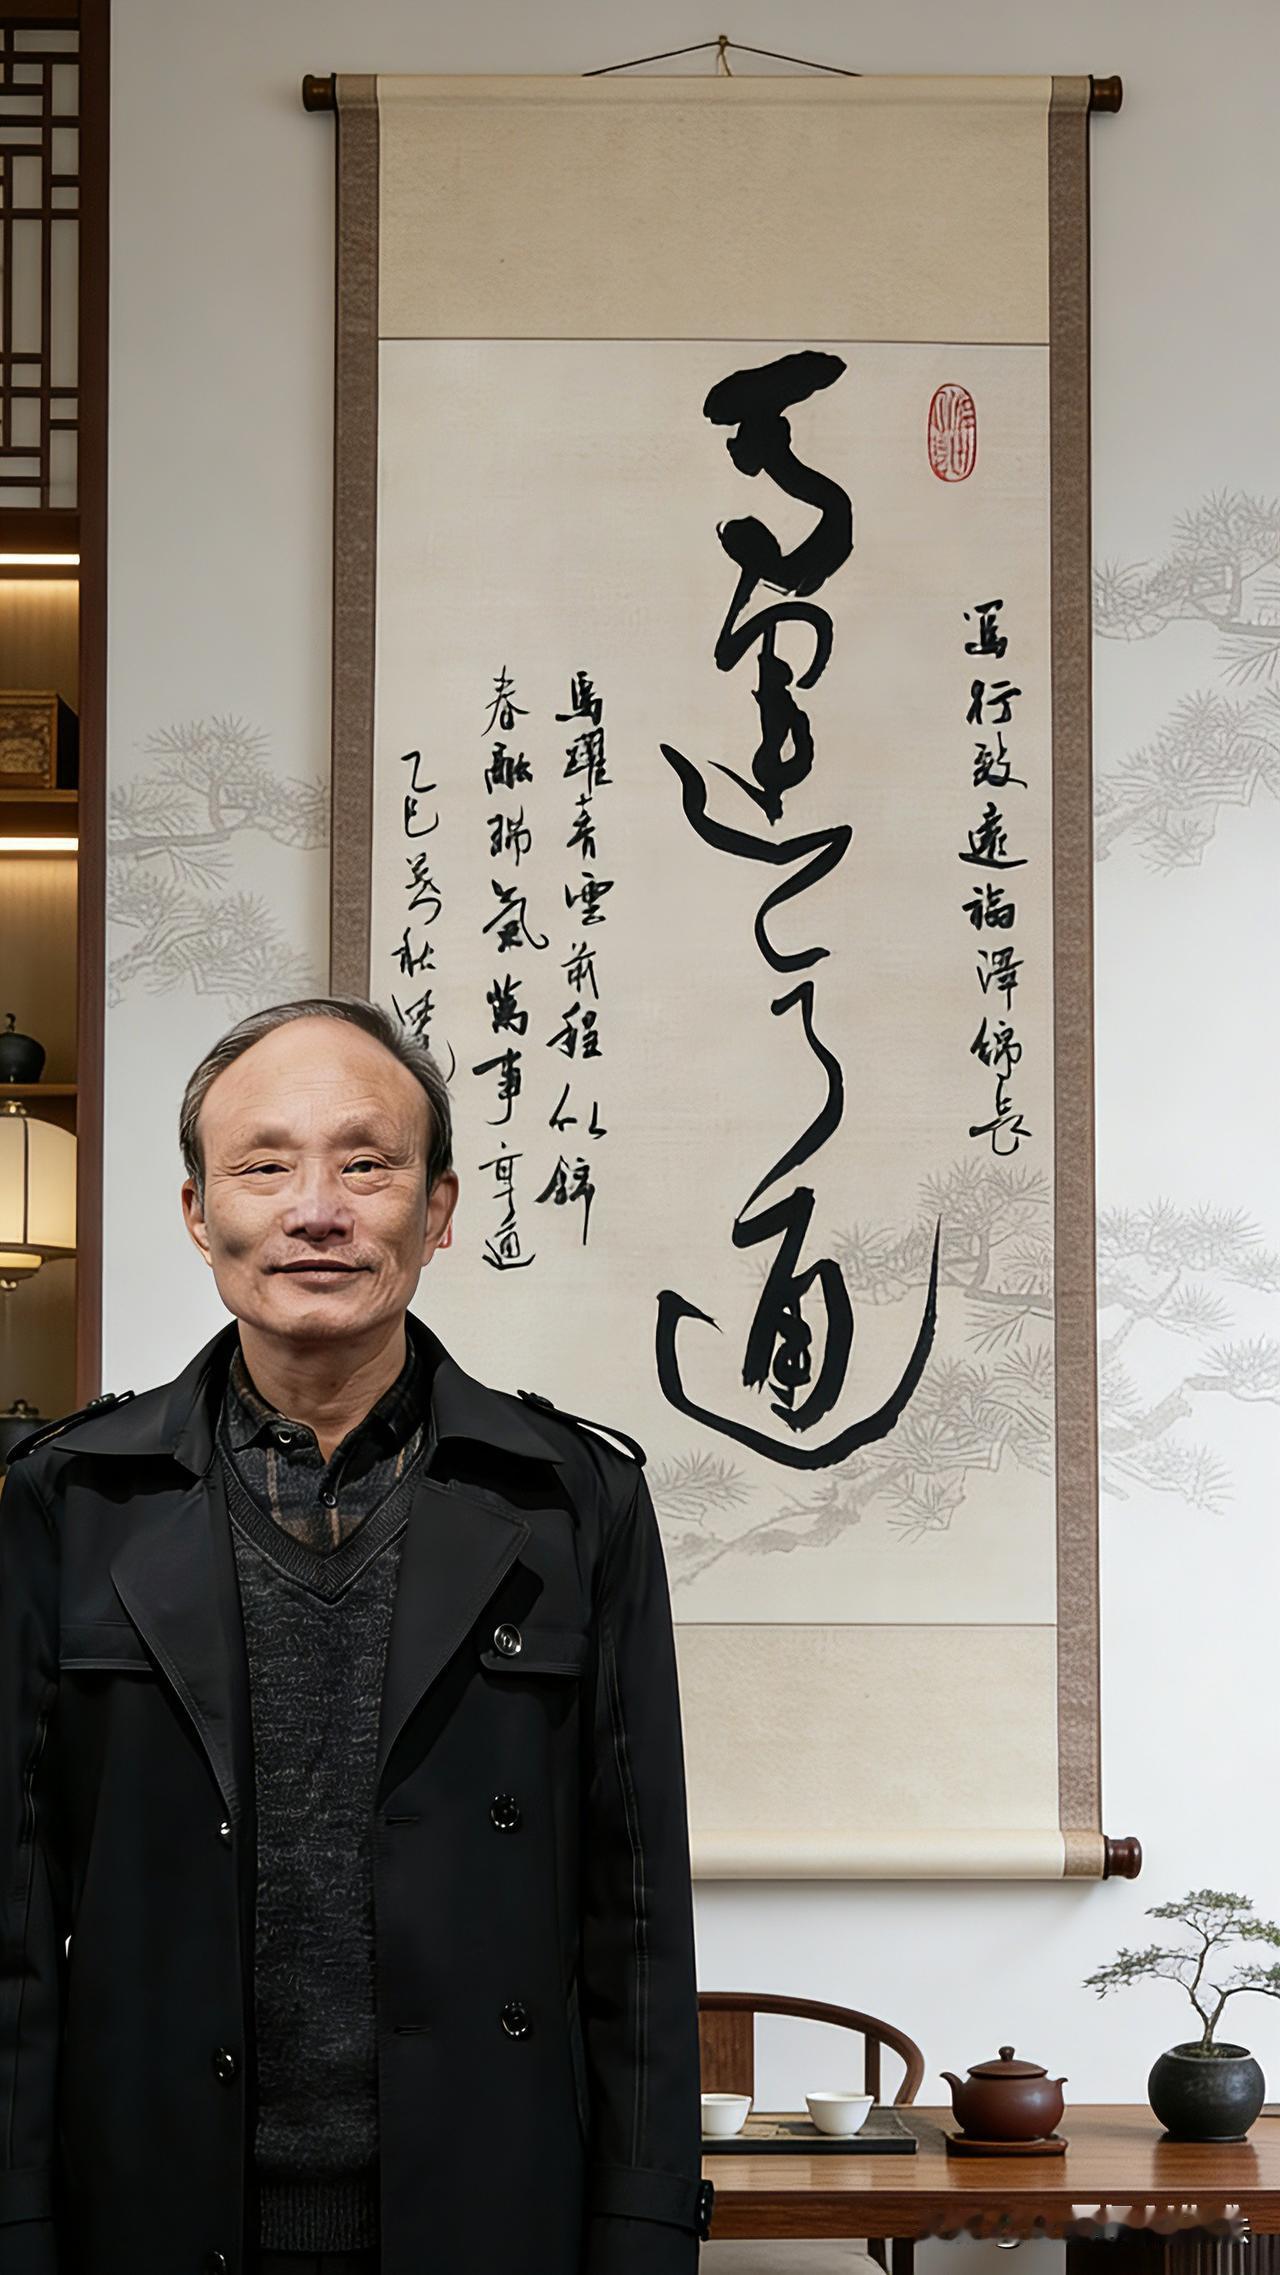 馬行致遠福澤綿長
馬運亨通
馬躍青雲前程似錦
春融瑞氣萬事亨通
乙巳 秋